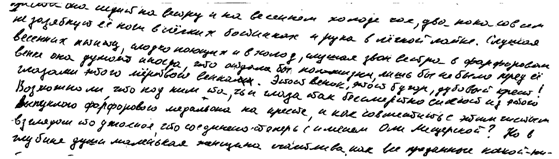 она сидит на ветру и на весеннем холоде час, два, пока совсем
не зазябнут её ноги в лёгких ботинках и рука в лёгкой лайке. Слушая
весенних птиц, сладко поющих и в холод, слушая звон ветра в фарфоровом
венке она думает иногда, что отдала бы полжизни, лишь бы не было пред её
глазами этого мёртвого венка. Этот венок, этот бугор, дубовый крест!
Возможно ли что под ним та, чьи глаза так бессмертно сияют из этого
выпуклого фарфорового медальона на кресте, и как совместить с этим чистым
взглядом то ужасное, что соединено теперь с именем Оли Мещерской? Но в
глубине души маленькая женщина счастлива, как все преданные какой-ни-